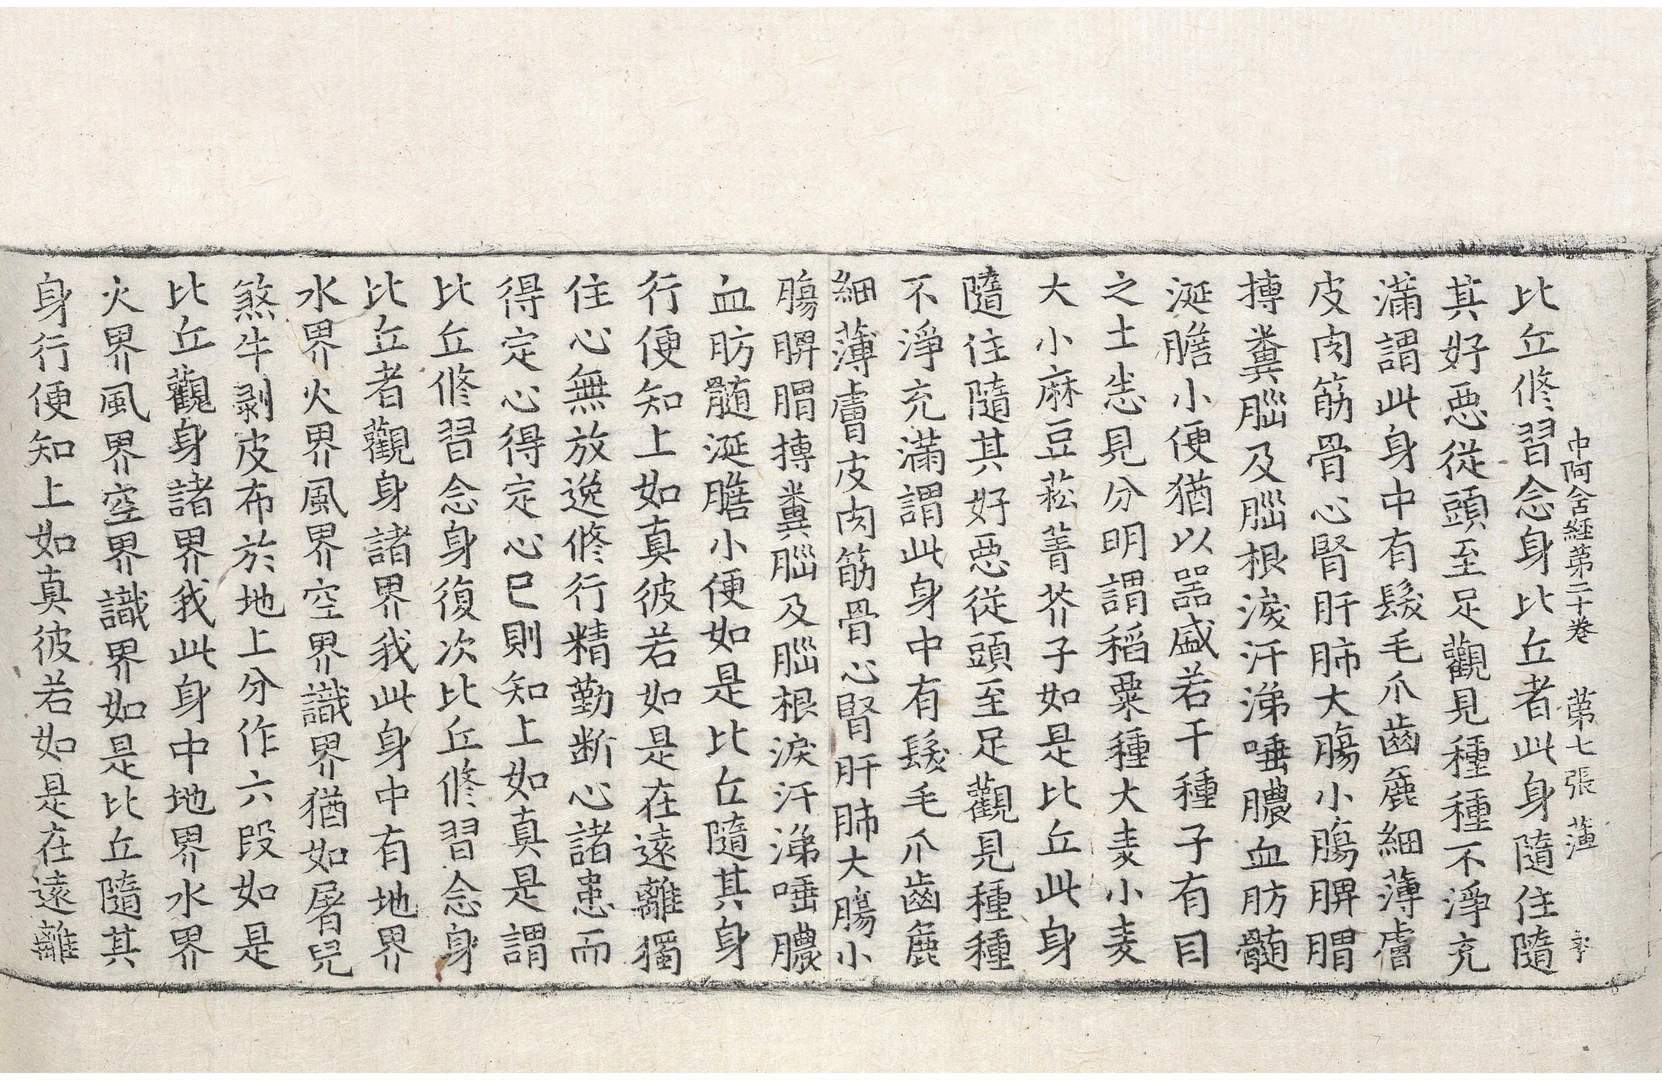 比丘脩習念身比丘者此身隨住隨
其好惡從頭至足觀見種種不淨充
滿謂此身中有髮毛爪齒麁細薄膚
皮肉筋骨心腎肝肺大腸小腸脾胃
摶糞腦及腦根淚汗涕唾膿血肪髓
涎膽小便猶以器盛若干種子有目
之士悉見分明謂稻粟種大麦小麦
大小麻豆菘菁芥子如是比丘此身
隨住隨其好惡從頭至足觀見種種
不淨充滿謂此身中有髮毛爪齒麁
細薄膚皮肉筋骨心腎肝肺大腸小
腸脾胃摶糞腦及腦根淚汗涕唾膿
血肪髓涎膽小便如是比丘隨其身
行便知上如真彼若如是在遠離獨
住心無放逸脩行精勤断心諸患而
得定心得定心已則知上如真是謂
比丘脩習念身復次比丘脩習念身
比丘者觀身諸界我此身中有地界
水界火界風界空界識界猶如屠兒
煞牛剥皮布於地上分作六段如是
比丘觀身諸界我此身中地界水界
火界風界空界識界如是比丘隨其
身行便知上如真彼若如是在遠離
中阿含經第二十卷 第七張 薄